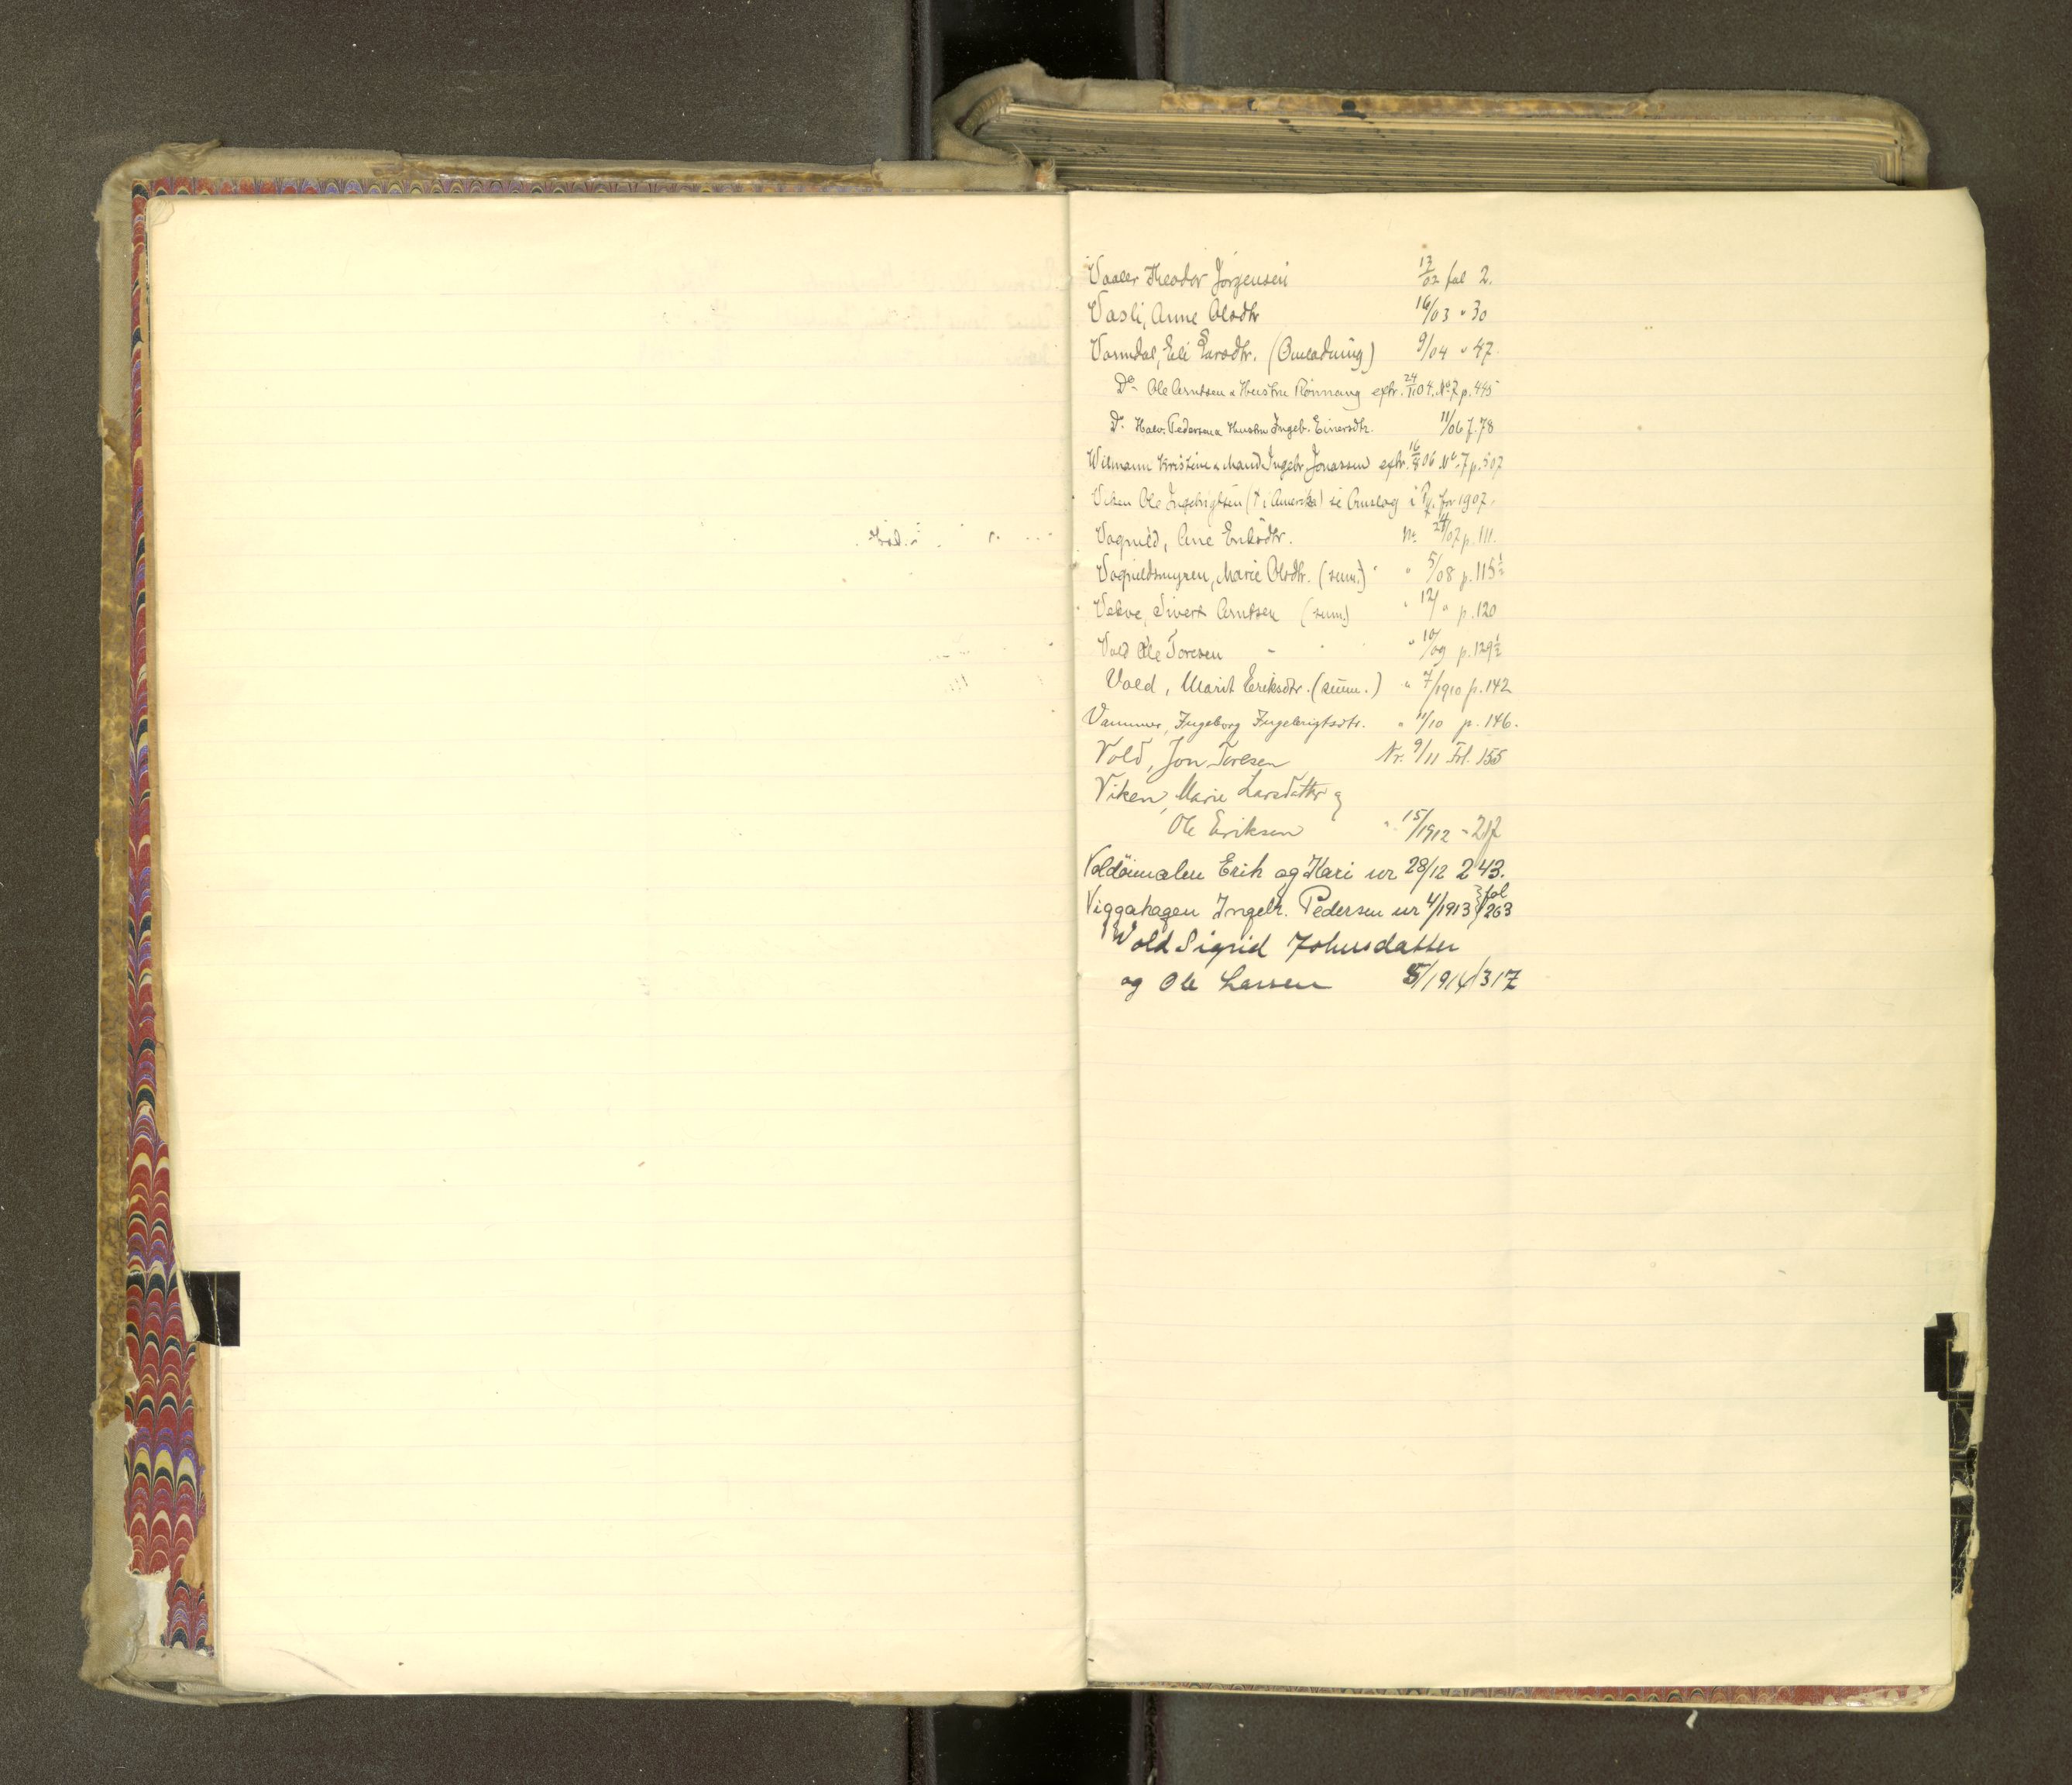 Vaaler Theodor Jörgensen 13/02 fol 2.
Vasli, Anne Olsdtr 16/03 " 30
Vormdal, Eli Larsdtr. (Omladning) 9/04 " 47.
Do Ole Arntsen & Hustru Rönnaug eftr. 24/11 04. No 7 p. 445
Do Halv. Pedersen & Hustru Ingeb. Einersdtr. 11/06 f. 78
Wilmann Kristine & Mand Ingebr Jonassen eftr. 16/8 06 No 7 p. 507
Viken Ole Ingebrigtsen († i Amerika) se Omslag i for 1907.
Vognild, Ane Eriksdtr. Nr. 24/07 p. 111.
Vognildsmyren, Marie Olsdtr. (sum.) " 5/08 p. 115½
Vekve, Sivert Arntsen (sum) " 12/" p. 120
Vold Ole Toresen " " " 10/09 p. 129½
Vold, Marit Eriksdtr. (summ.) " 7/1910 p. 142
Vammer, Ingeborg Ingebrigtsdtr. " 11/10 p. 146.
Vold, Jon Toresen Nr. 9/11 Fol. 155
Viken, Marie Larsdatter og
Ole Eriksen " 15/1912 " 217
Erik og Kari nr 28/12 243.
Viggahagen Ingebr. Pedersen nr 4/1913 fol 263
Vold Sigrid Johnsdatter
og Ole Larsen 5/1914 317